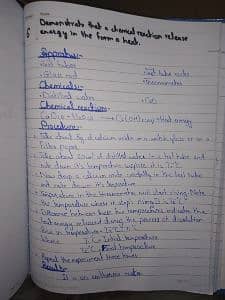 Demonstrate that a chemical reaction release
energy in the form a heat.
Apparatus:-
Test tubes
Test tube racks
Glass rod
Thermometer
Chemicals:-
Distilled water
CaO
Chemical reaction:-
CaO(s) + H2O(l) → Ca(OH)2(aq) + heat energy
Procedure:-
Take about 5g of calcium oxide on a watch glass or on a
filter paper.
Take about 20ml of distilled water in a test tube and
note down its temperature suppose it is T1°C.
Now drop a calcium oxide carefully in the test tube
and note down its temperature
Temperature in the thermometer will start rising. Note
the temperature when it stops rising
Difference between these two temperatures indicates the
heat energy released during the process of dissolution.
Rise in temperature =
Where T1°C = Initial temperature
T2°C = Final temperature
Repeat the experiment three times
Result:-
It is an exothermic reaction